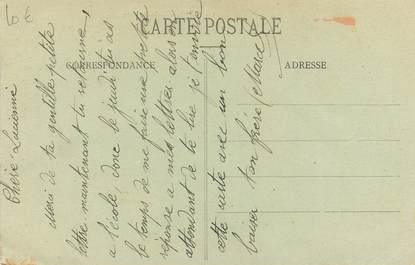 10€
CARTE POSTALE
CORRESPONDANCE
ADRESSE
Chère Lucienne
Merci de ta gentille petite
lettre maintenant tu retourne
a l'école, donc le jeudi tu as
le temps de me faire une petite
réponse a mes lettres alors en
attendant de te lire je t'envoie
cette carte avec un bon
baiser ton frère Marcel